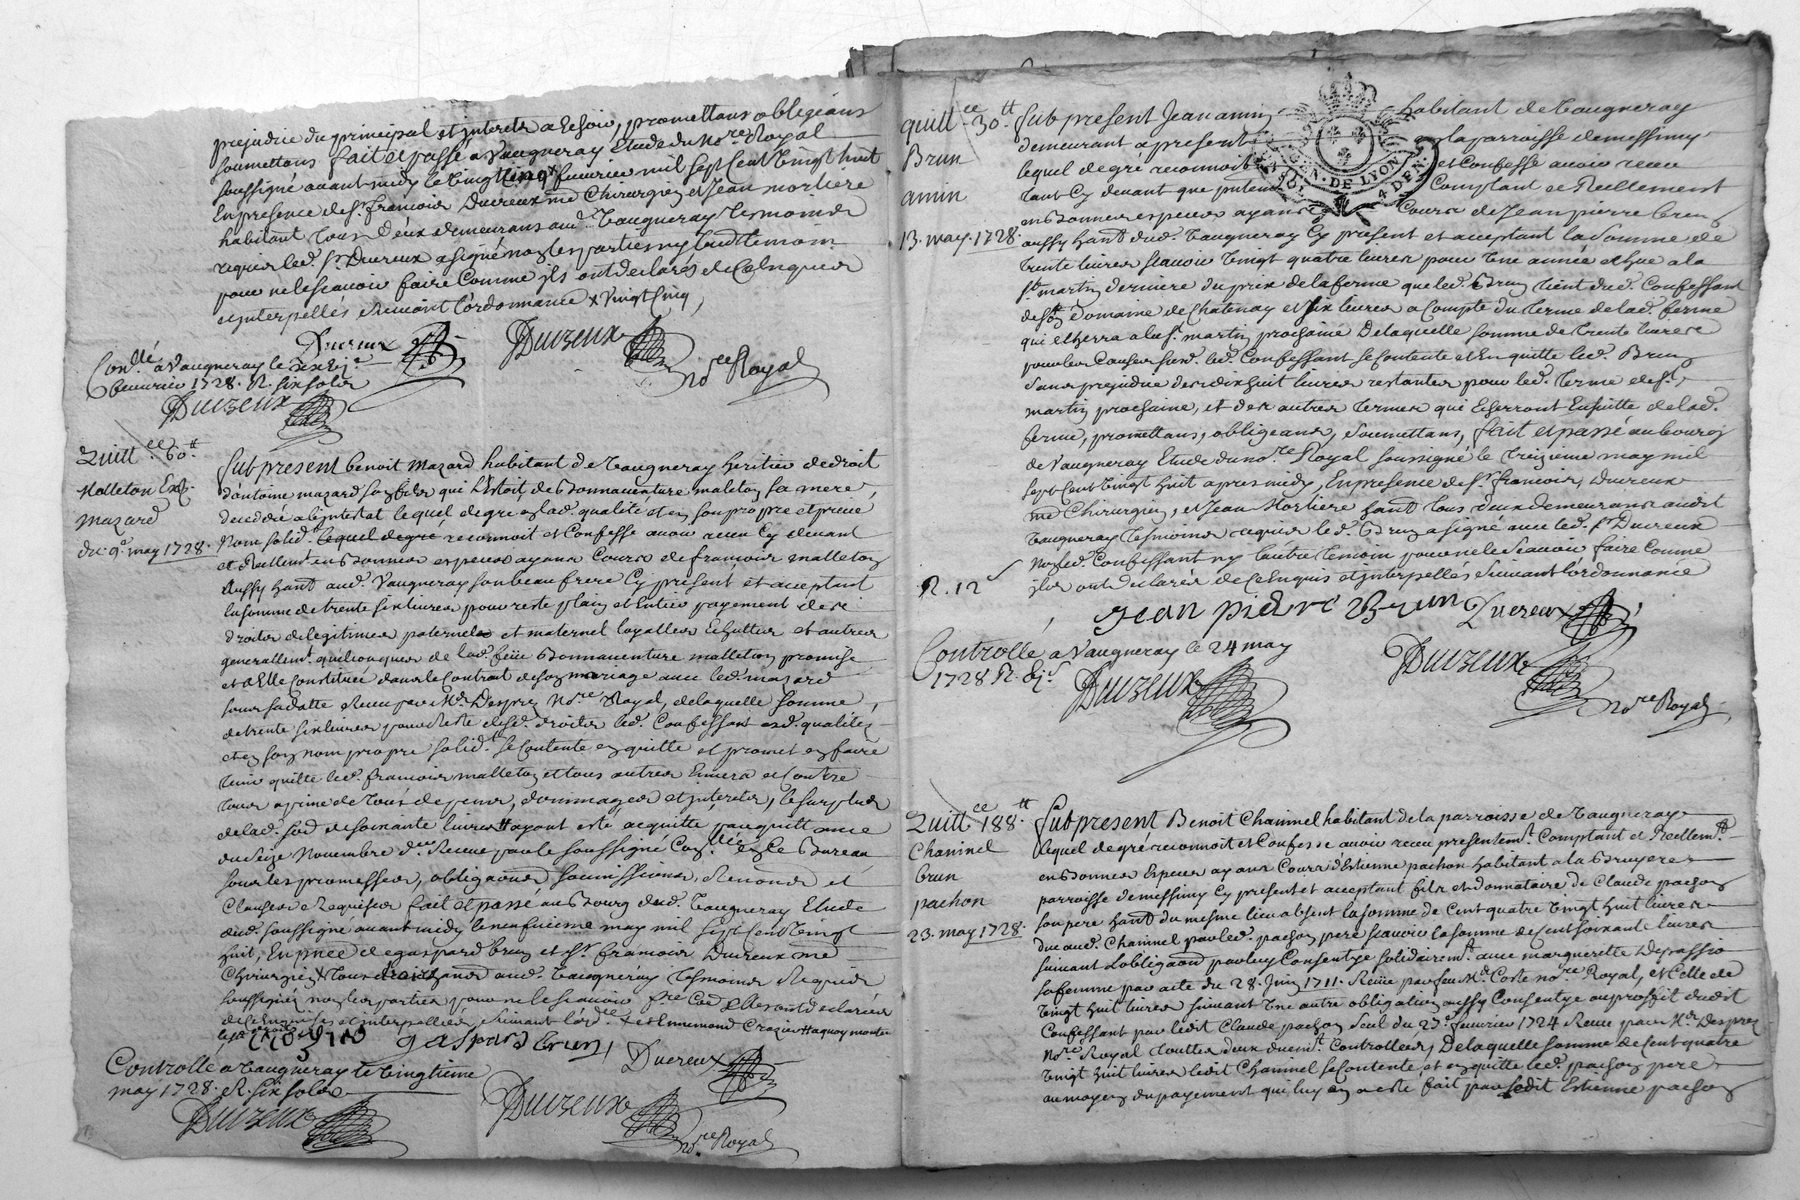 prejudice du principal et interets a Echoir, promettans obligeans
soumettans fait et passé a Vaugneray Etude du No.re Royal
soussigné avant midy le Vingt cinq feuvrier mil sept Cent Vingt huit
En presence de Sr. francois Ducreux me Chirurgien et Jean mortiere
habitant tous deux demeurans aud. Vaugneray Tesmoins
requis led. Sr Ducreux a signé non les parties ny led. temoin
pour ne le scavoir faire Comme ils ont declarés de ce Enquis
et interpellés suivant l'ordonnance x Vingt Cinq
Ducreux
Duvzeux
no.re Royal
Con.llé a Vaugneray le
feuvrier 1728. R. six sols
Duvzeux
Quitt.ce 60.tt
Molleton Ex
Mazard
du 9.e may 1728.
Sut present benoit Mazard habitant de Vaugneray heritier de droit
d'antoine mazard son frere qui L'Estoit de Bonnaventure maleton sa mere
decedée abintestat lequel de gre en lad. qualité et en son propre et privé
Nom solid. lequel de gré reconnoit et Confesse avoir receu Cy devant
et Reellem.t en Bonnes especes ayans Cours de francois malleton
Aussy hant aud. Vaugneray son beau frere Cy present et acceptant
la somme de trente six livres pour reste plain et Entier payement des
droits de legitimes paternels et maternel loyalles Echuttes et autres
generallem.t quelconques de lad. feüe Bonnaventure malleton promise
et a Elle Constituée dans le Contrat de son mariage avec led. mazard
sous sa datte Receu par Me. Desprez No.re Royal, de laquelle somme
de trente six livres pour Reste desd. droits led. Confessant esd. qualités
et en son nom propre solid.t se Contente en quitte et promet en faire
tenir quitte led. francois malleton et tous autres Envers et Contre
tous a peine de tous depens, dommages et interets, le surplus
de lad. so.e de soixante livres ayant esté acquitté par quittance
du seize Novembre d.er Receue par le soussigné Con.llée en Ce Bureau
sous les promesses, obligaons soumissions, Renons et
Clauses Requises fait et passé au Bourg dud. Vaugneray Etude
dud. soussigné avant midy le neufvieme may mil sept Cent Vingt
huit, En pnce de gaspard brun et Sr. francois Ducreux me
Chirurgien x tous trois hans aud. Vaugneray Tesmoins Requis
soussignés non les parties pour ne le scavoir fre Co.e Elles ont declarées
de ce Enquises et interpellées suivant l'ord.ce x et Ennemond Crozier
gaspard brun
Ducreux
Controllé a Vaugneray le Vingtieme
may 1728. R. six sols
Duvzeux
Duvzeux
no.re Royal
quitt.ce 30.tt
Brun
amin
13. may. 1728.
Sut present Jean amin habitant de Vaugneray
demeurant a present la parroisse de messimy
lequel de gré reconnoit et Confesse avoir receu
tant Cy devant que presen Comptant et Reellement
en Bonnes especes ayans Cours de Jean pierre brun
aussy hant dud. Vaugneray Cy present et acceptant la Somme de
trente livres scavoir Vingt quatre livres pour Une année Echue a la
St. martin derniere du prix de la ferme que led. Brun tient dud. Confessant
de son domaine de Chatenay et six livres a Compte du terme de lad. ferme
qui Echerra a la St. martin prochaine De laquelle somme de trente livres
pour les Causes susd. led. Confessant se Contente et En quitte led. Brun
sans prejudice des dix huit livres restantes pour led. terme de St.
martin prochaine, et des autres termes qui Echerront En suitte de lad.
ferme, promettans, obligeans, soumettans, fait et passé au bourg
de Vaugneray Etude du no.re Royal soussigné le treizieme may mil
sept Cent Vingt huit apres midy, En presence de Sr. francois Ducreux
me Chirurgien, et Jean Mortiere hant tous deux demeurans audit
Vaugneray Tesmoins requis led. Brun a signé avec led. Sr Ducreux
Non led. Confessant ny l'autre temoin pour ne le Scavoir faire Comme
ils ont declarés de Ce Enquis et interpellés Suivant l'ordonnance
R. 12 s
Jean pierre Brun
Ducreux
Controllé a Vaugneray le 24 may
1728 R.
Duvzeux
Duvzeux
no.re Royal
GEN. DE LYON
Quitt.ce 188.tt
Chanmel
brun
pachon
23. may 1728.
Sut present Benoit Chanmel habitant de la parroisse de Vaugneray
lequel de gré reconnoit et Confesse avoir receu presentem.t Comptant et Reellem.t
en Bonnes Especes ayans Cours d'Estienne pachon habitant a la Bruyere
parroisse de messimy Cy present et acceptant fils et donnataire de Claude pachon
son pere hant du mesme lieu absent la somme de Cent quatre Vingt huit livres
due aud. Chanmel par led. pachon pere scavoir la somme de Cent soixante livres
suivant L'obligaon par luy Consentye solidairem.t avec marguerite Depassio
sa femme par acte du 28. Juin 1711. Receüe par feu Me Coste no.re Royal, et Celle de
Vingt huit livres suivant Une autre obligation aussy Consentye au proffit dudit
Confessant par ledit Claude pachon seul du 27.e feuvrier 1724 Receue par Me. Desprez
No.re Royal touttes deux duem.t Controllées, De laquelle somme de Cent quatre
Vingt huit livres ledit Chanmel se Contente et en quitte led. pachon pere
au moyen du payement qui luy en a esté fait par ledit Estienne pachon